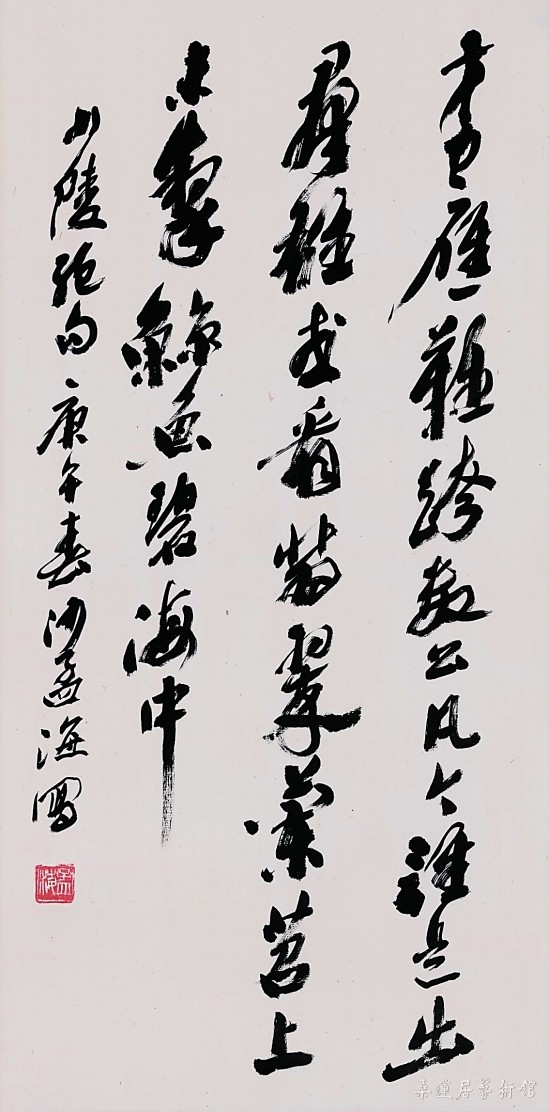 才力應難跨數公凡今誰是出
群雄或看翡翠蘭苕上
未掣鯨魚碧海中
少陵絕句 庚午春 沙孟海寫
孟海
居藝術館